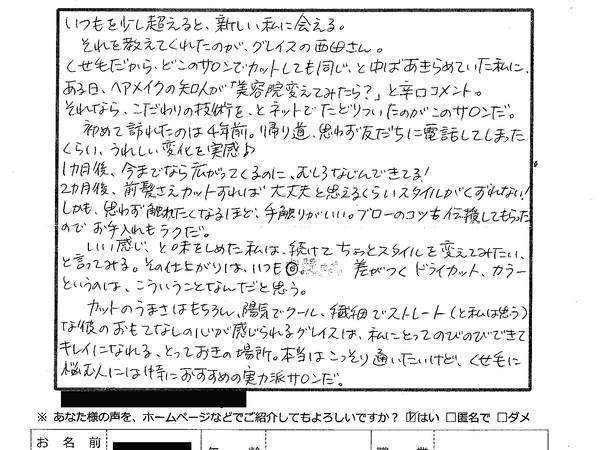 いつもを少し超えると、新しい私に会える。
それを教えてくれたのが、グレイスの西田さん。
くせ毛だから、どこのサロンでカットしても同じ、と中ばあきらめていた私に、
ある日、ヘアメイクの知人が「美容院変えてみたら?」と辛口コメント。
それなら、こだわりの技術を、とネットでたどりついたのがこのサロンだ。
初めて訪れたのは4年前。帰り道、思わず友だちに電話してしまった
くらい、うれしい変化を実感♪
1カ月後、今までなら広がってくるのに、むしろなじんできてる!
2カ月後、前髪さえカットすれば大丈夫と思えるくらいスタイルがくずれない!
しかも、思わず触れたくなるほど、手触りがいい。ブローのコツも伝授してもらった
のでお手入れもラクだ。
いい感じ、と味をしめた私は、続けてちょっとスタイルを変えてみたい、
と言ってみる。その仕上がりは、いつも◎。差がつくドライカット、カラー
というのは、こういうことなんだと思う。
カットのうまさはもちろん、陽気でクール、繊細でストレート(と私は思う)
な彼のおもてなしの心が感じられるグレイスは、私にとってのびのびできて
キレイになれる、とっておきの場所。本当はこっそり通いたいけど、くせ毛に
悩む人には特におすすめの実力派サロンだ。
※ あなた様の声を、ホームページなどでご紹介してもよろしいですか? ☑はい □匿名で □ダメ
お名前 年 齢 職 業